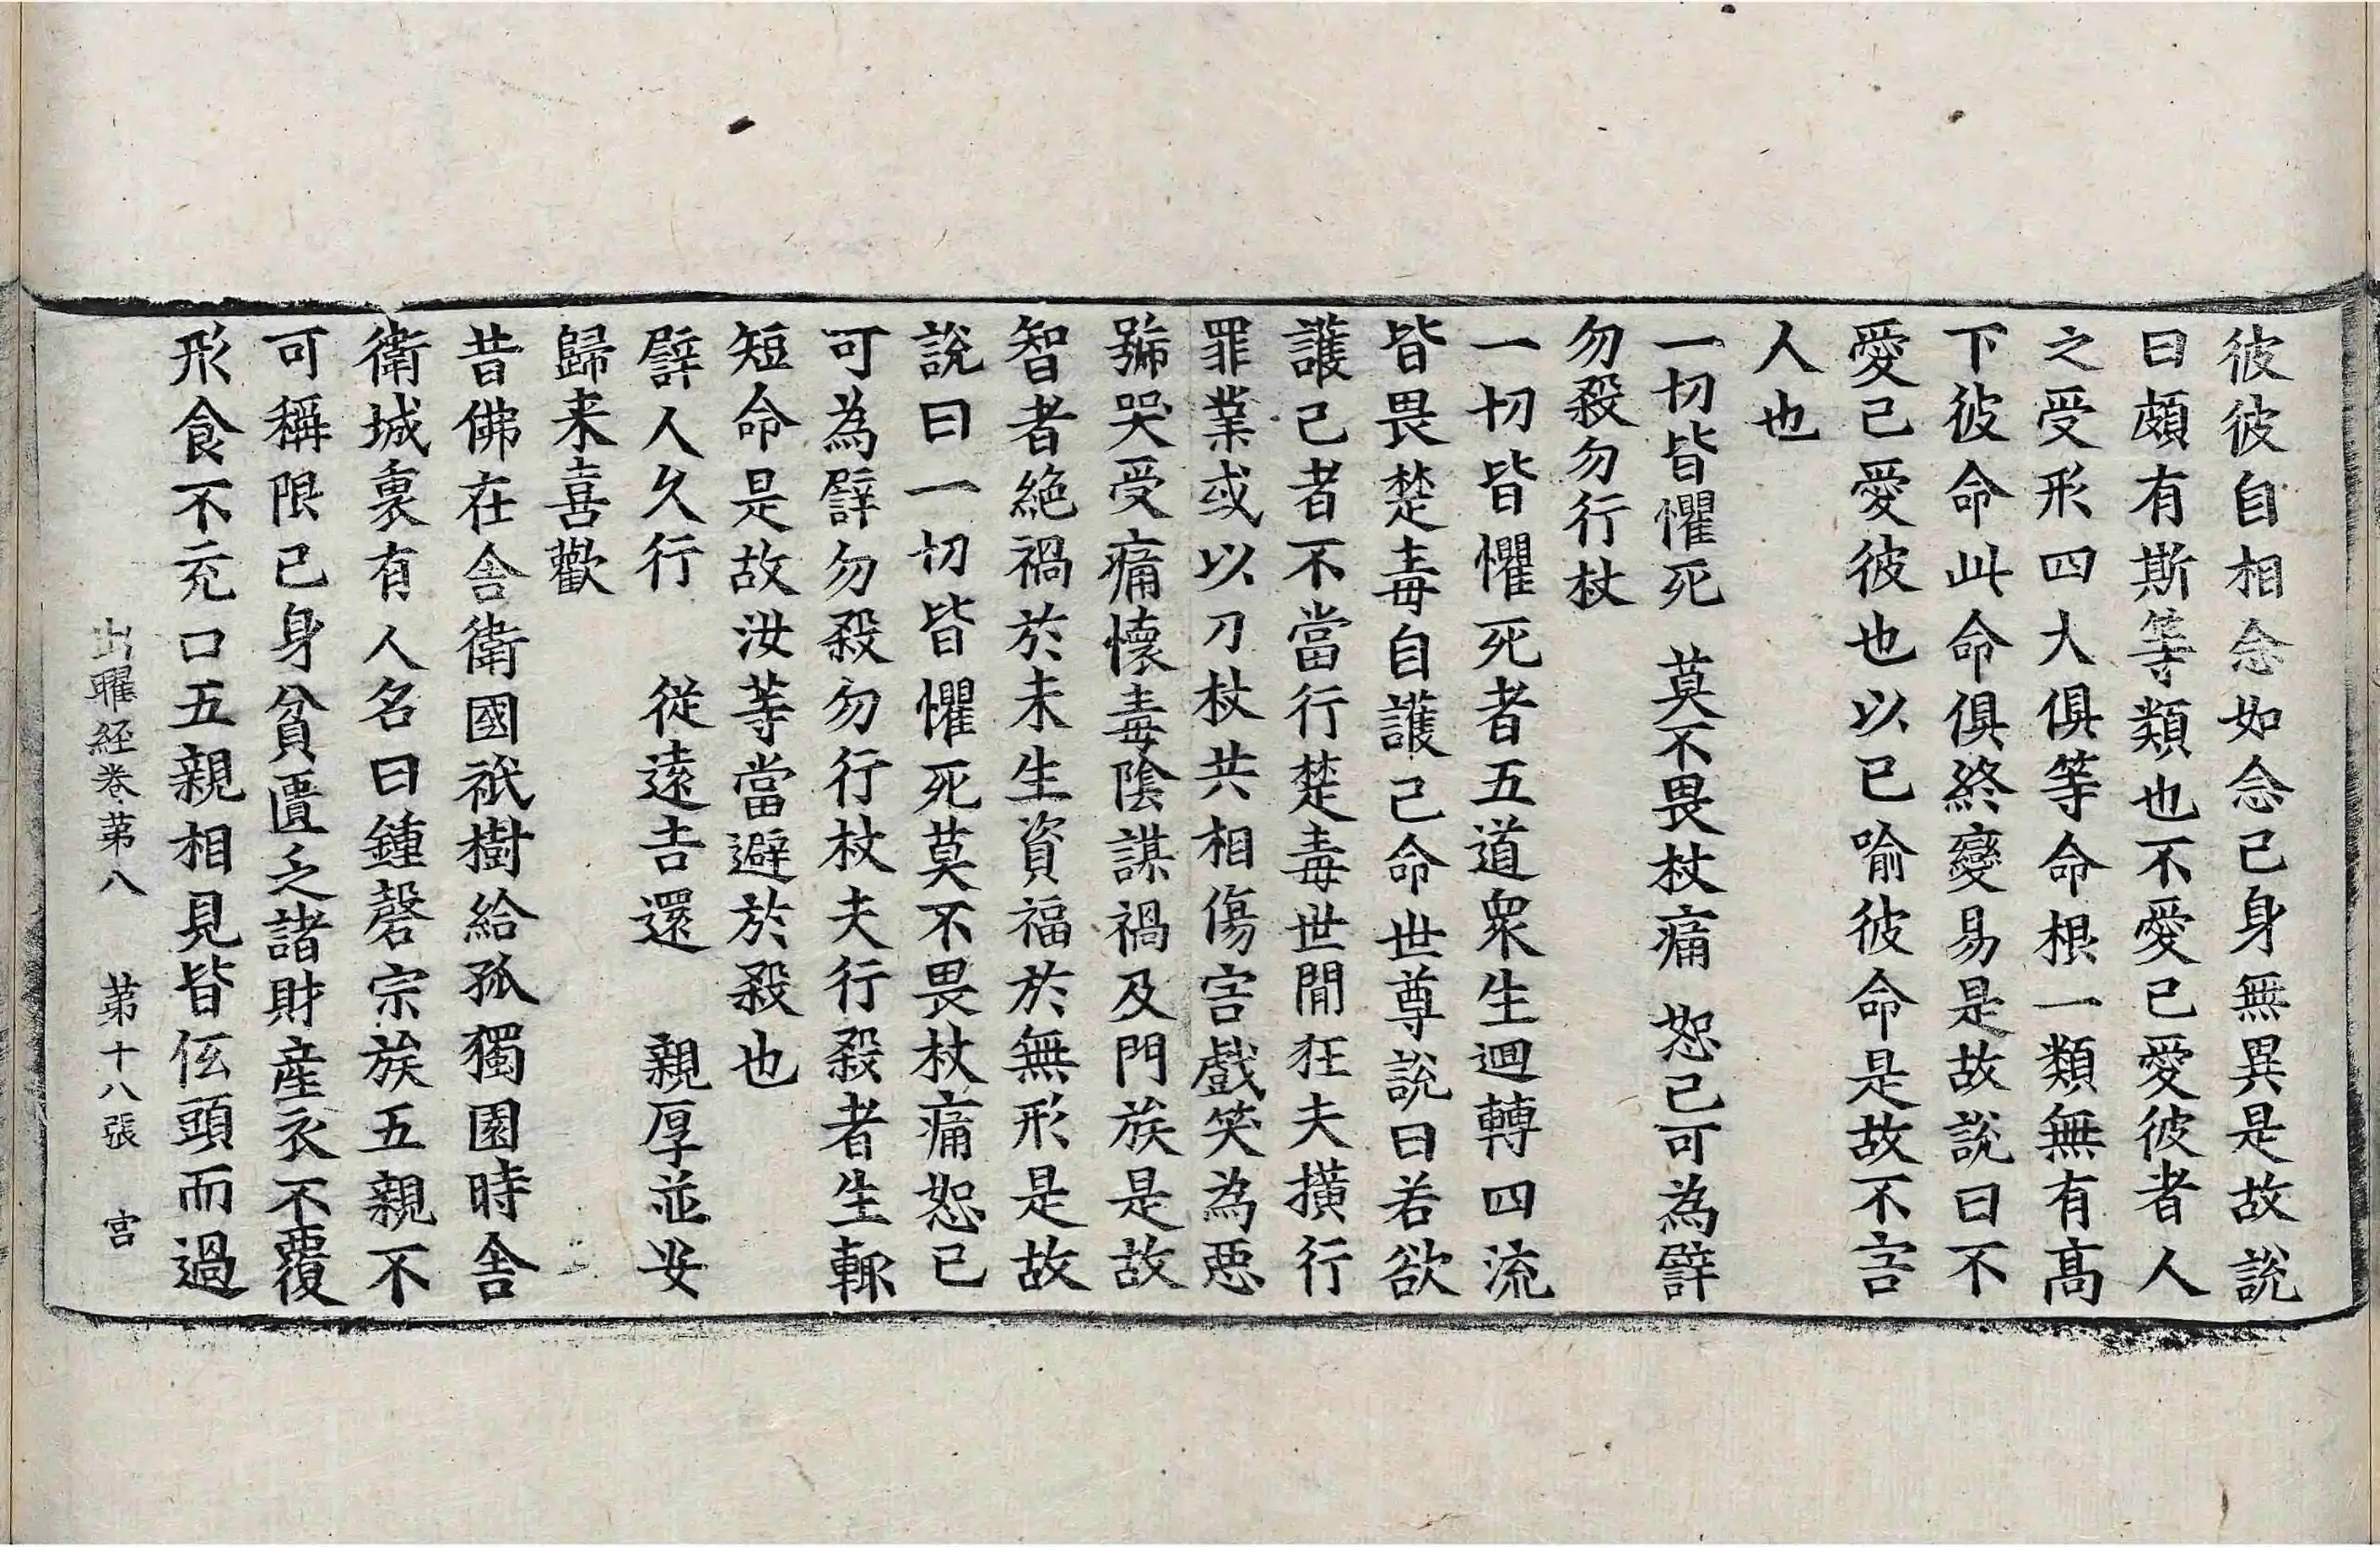 彼彼自相念如念己身無異是故說
曰頗有斯等類也不愛已愛彼者人
之受形四大俱等命根一類無有高
下彼命此命俱終變易是故說曰不
愛己愛彼也以已喻彼命是故不害
人也
一切皆懼死　莫不畏杖痛　恕已可為譬
勿殺勿行杖
一切皆懼死者五道衆生迴轉四流
皆畏楚毒自護己命世尊說曰若欲
護己者不當行楚毒世間狂夫撗行
罪業或以刀杖共相傷害戲笑為惡
號哭受痛懷毒陰謀禍及門族是故
智者絶禍於未生資福於無形是故
說曰一切皆懼死莫不畏杖痛恕已
可為譬勿殺勿行杖夫行殺者生輙
短命是故汝等當避於殺也
譬人久行　從遠吉還　親厚並安
歸来喜歡
昔佛在舍衛國祇樹給孤獨園時舍
衛城裏有人名曰鍾磬宗族五親不
可稱限已身貧匱乏諸財産衣不覆
形食不充口五親相見皆伭頭而過
出曜経卷第八　第十八張　宫